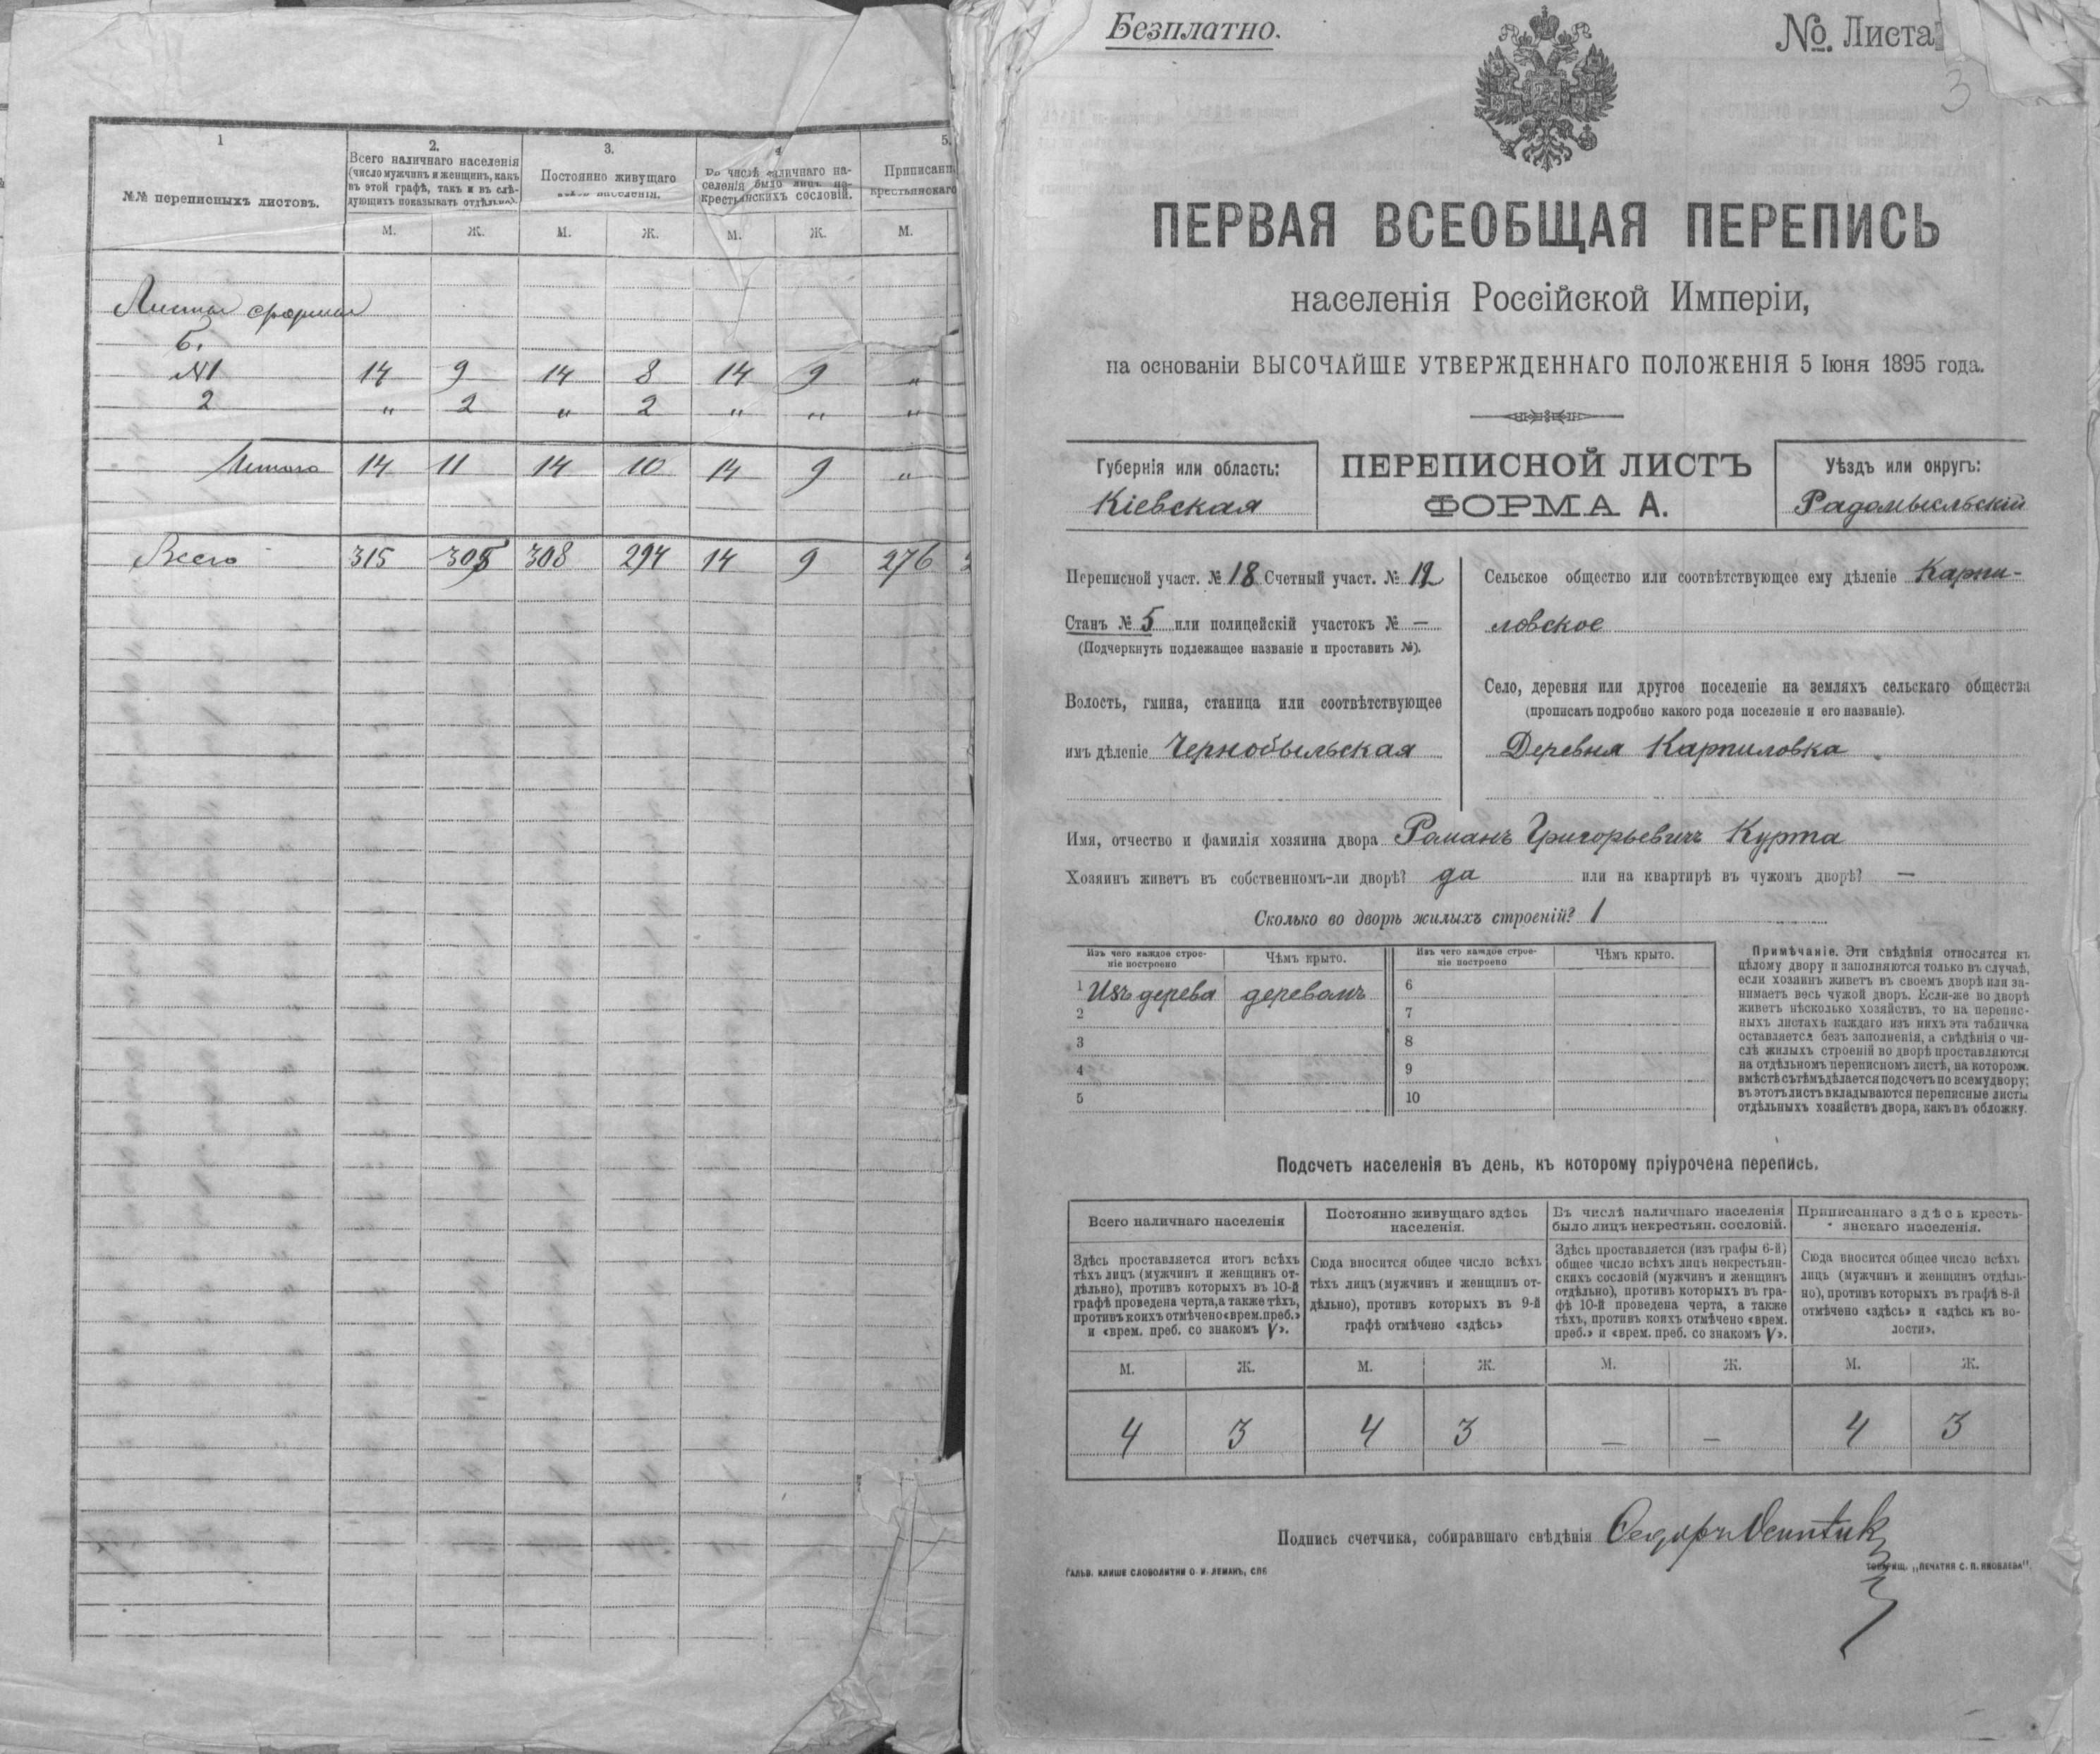 1
2.
3.
4
5.
№№ переписныхъ листовъ.
Всего наличнаго населенія
(число мужчинъ и женщинъ, какъ
въ этой графѣ, такъ и въ слѣ-
дующихъ показывать отдѣльно).
Постоянно живущаго
населенія.
Въ числѣ наличнаго на-
селенія было лицъ не-
крестьянскихъ сословій.
Приписанн
крестьянскаго
М. Ж. М. Ж. М. Ж. М.
Листы формы
Б.
№1 14 9 14 8 14 9 „
2 „ 2 „ 2 „ „ „
Итого 14 11 14 10 14 9 „
Всего 315 305 308 294 14 9 276
Безплатно.
№. Листа
3
ПЕРВАЯ ВСЕОБЩАЯ ПЕРЕПИСЬ
населенія Россійской Имперіи,
на основаніи ВЫСОЧАЙШЕ УТВЕРЖДЕННАГО ПОЛОЖЕНІЯ 5 Іюня 1895 года.
Губернія или область:
Кіевская
ПЕРЕПИСНОЙ ЛИСТЪ
ФОРМА А.
Уѣздъ или округъ:
Радомысльскій
Переписной участ. № 18 Счетный участ. № 12
Станъ № 5 или полицейскій участокъ № —
(Подчеркнуть подлежащее названіе и проставить №).
Волость, гмина, станица или соотвѣтствующее
имъ дѣленіе Чернобыльская
Сельское общество или соотвѣтствующее ему дѣленіе Карпи-
ловское
Село, деревня или другое поселеніе на земляхъ сельскаго общества
(прописать подробно какого рода поселеніе и его названіе).
Деревня Карпиловка
Имя, отчество и фамилія хозяина двора Романъ Григорьевичъ Курта
Хозяинъ живетъ въ собственномъ-ли дворѣ? да или на квартирѣ въ чужомъ дворѣ? —
Сколько во дворѣ жилыхъ строеній? 1
Изъ чего каждое строе-
ніе построено
Чѣмъ крыто.
Изъ чего каждое строе-
ніе построено
Чѣмъ крыто.
1 Изъ дерева деревомъ 6
2 7
3 8
4 9
5 10
Примѣчаніе. Эти свѣдѣнія относятся къ
цѣлому двору и заполняются только въ случаѣ,
если хозяинъ живетъ въ своемъ дворѣ или за-
нимаетъ весь чужой дворъ. Если-же во дворѣ
живетъ нѣсколько хозяйствъ, то на перепис-
ныхъ листахъ каждаго изъ нихъ эта табличка
оставляется безъ заполненія, а свѣдѣнія о чи-
слѣ жилыхъ строеній во дворѣ проставляются
на отдѣльномъ переписномъ листѣ, на которомъ
вмѣстѣ съ тѣмъ дѣлается подсчетъ по всему двору;
въ этотъ листъ вкладываются переписные листы
отдѣльныхъ хозяйствъ двора, какъ въ обложку.
Подсчетъ населенія въ день, къ которому пріурочена перепись.
Всего наличнаго населенія
Постоянно живущаго здѣсь
населенія.
Въ числѣ наличнаго населенія
было лицъ некрестьян. сословій.
Приписаннаго здѣсь кресть-
янскаго населенія.
Здѣсь проставляется итогъ всѣхъ
тѣхъ лицъ (мужчинъ и женщинъ от-
дѣльно), противъ которыхъ въ 10-й
графѣ проведена черта, а также тѣхъ,
противъ коихъ отмѣчено «врем. преб.»
и «врем. преб. со знакомъ V».
Сюда вносится общее число всѣхъ
тѣхъ лицъ (мужчинъ и женщинъ от-
дѣльно), противъ которыхъ въ 9-й
графѣ отмѣчено «здѣсь»
Здѣсь проставляется (изъ графы 6-й)
общее число всѣхъ лицъ некрестьян-
скихъ сословій (мужчинъ и женщинъ
отдѣльно), противъ которыхъ въ гра-
фѣ 10-й проведена черта, а также
тѣхъ, противъ коихъ отмѣчено «врем.
преб.» и «врем. преб. со знакомъ V».
Сюда вносится общее число всѣхъ
лицъ (мужчинъ и женщинъ отдѣль-
но), противъ которыхъ въ графѣ 8-й
отмѣчено «здѣсь» и «здѣсь въ во-
лости».
М. Ж. М. Ж. М. Ж. М. Ж.
4 3 4 3 — — 4 3
Подпись счетчика, собиравшаго свѣдѣнія
ГАЛЬВ. КЛИШЕ СЛОВОЛИТНИ О. И. ЛЕМАНЪ, СПБ
ТОВАРИЩ. „ПЕЧАТНЯ С. П. ЯКОВЛЕВА".